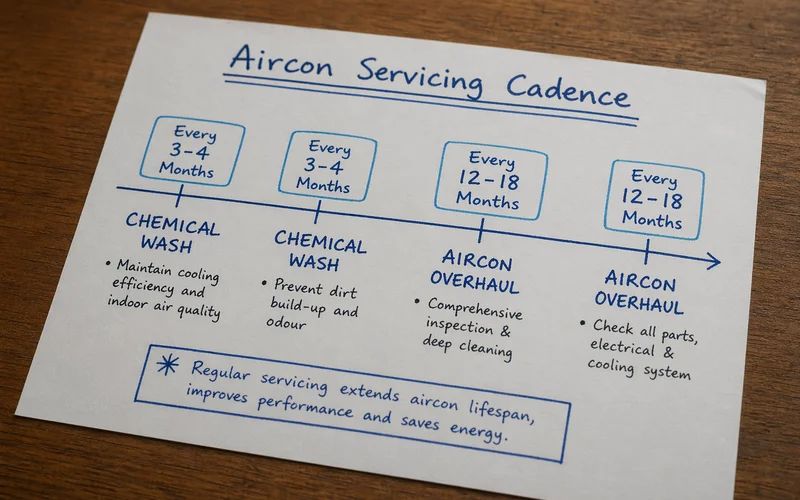 Aircon Servicing Cadence
Every
3-4
Months
Every
3-4
Months
Every
12-18
Months
Every
12-18
Months
CHEMICAL
WASH
• Maintain cooling
efficiency and
indoor air quality
CHEMICAL
WASH
• Prevent dirt
build-up and
odour
AIRCON
OVERHAUL
• Comprehensive
inspection &
deep cleaning
AIRCON
OVERHAUL
• Check all parts,
electrical &
cooling system
* Regular servicing extends aircon lifespan,
improves performance and saves energy.